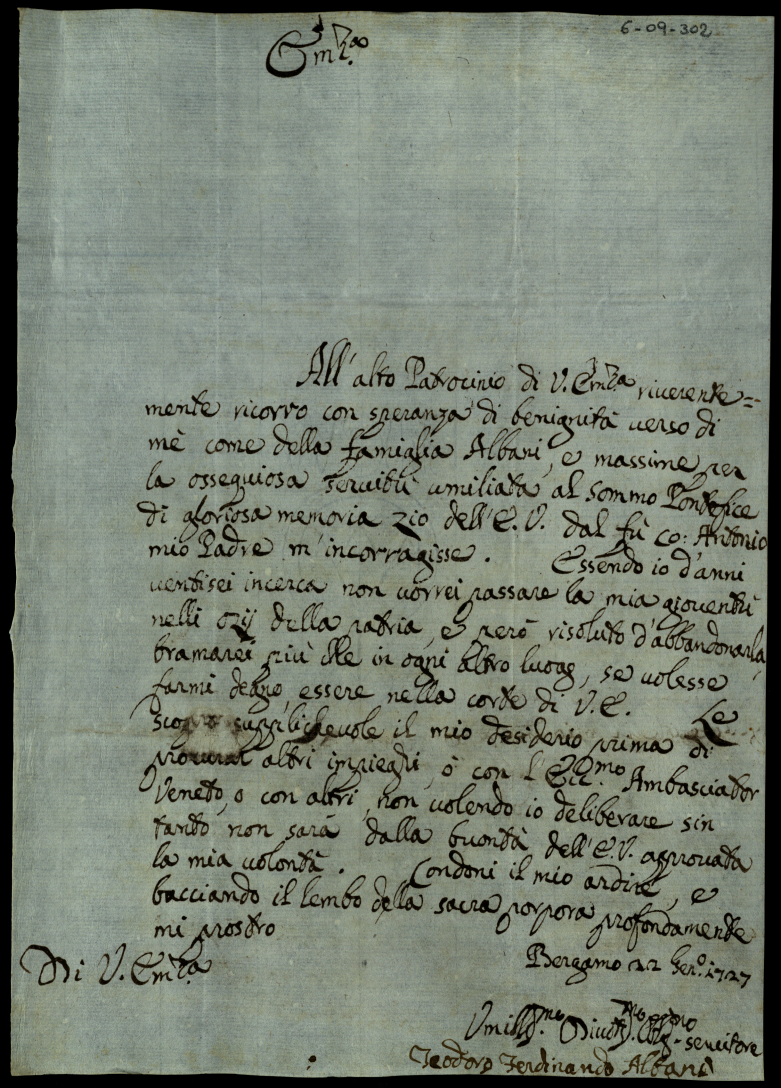 6-09-302
Em.za
All'alto Patrocinio di V. Em.za riverente=
mente ricorro con speranza di benignità verso di
mè come della famiglia Albani, e massime per
la ossequiosa servitù umiliata al Sommo Pontefice
di gloriosa memoria zio dell'E.V. dal fù co: Antonio
mio Padre m'incorragisse. Essendo io d'anni
ventisei incerca non vorrei passare la mia gioventù
nelli ozij della patria, e però risoluto d'abbandonarla,
bramarei più che in ogni altro luogo, se volesse
farmi degno, essere nella corte di V.E. Le
scopro supplichevole il mio desiderio prima di
procurar altri impieghi, ò con l'Ecc.mo Ambasciator
Veneto, o con altri, non volendo io deliberare sin
tanto non sarà dalla buontà dell'E.V. approvata
la mia volontà. Condoni il mio ardire, e
bacciando il lembo della sacra porpora profondamente
mi prostro
Di V. Em.za
Bergamo 22 Gen.o 1727
Umiliss.mo Divotiss.mo Oblig.mo servitore
Teodoro Ferdinando Albani